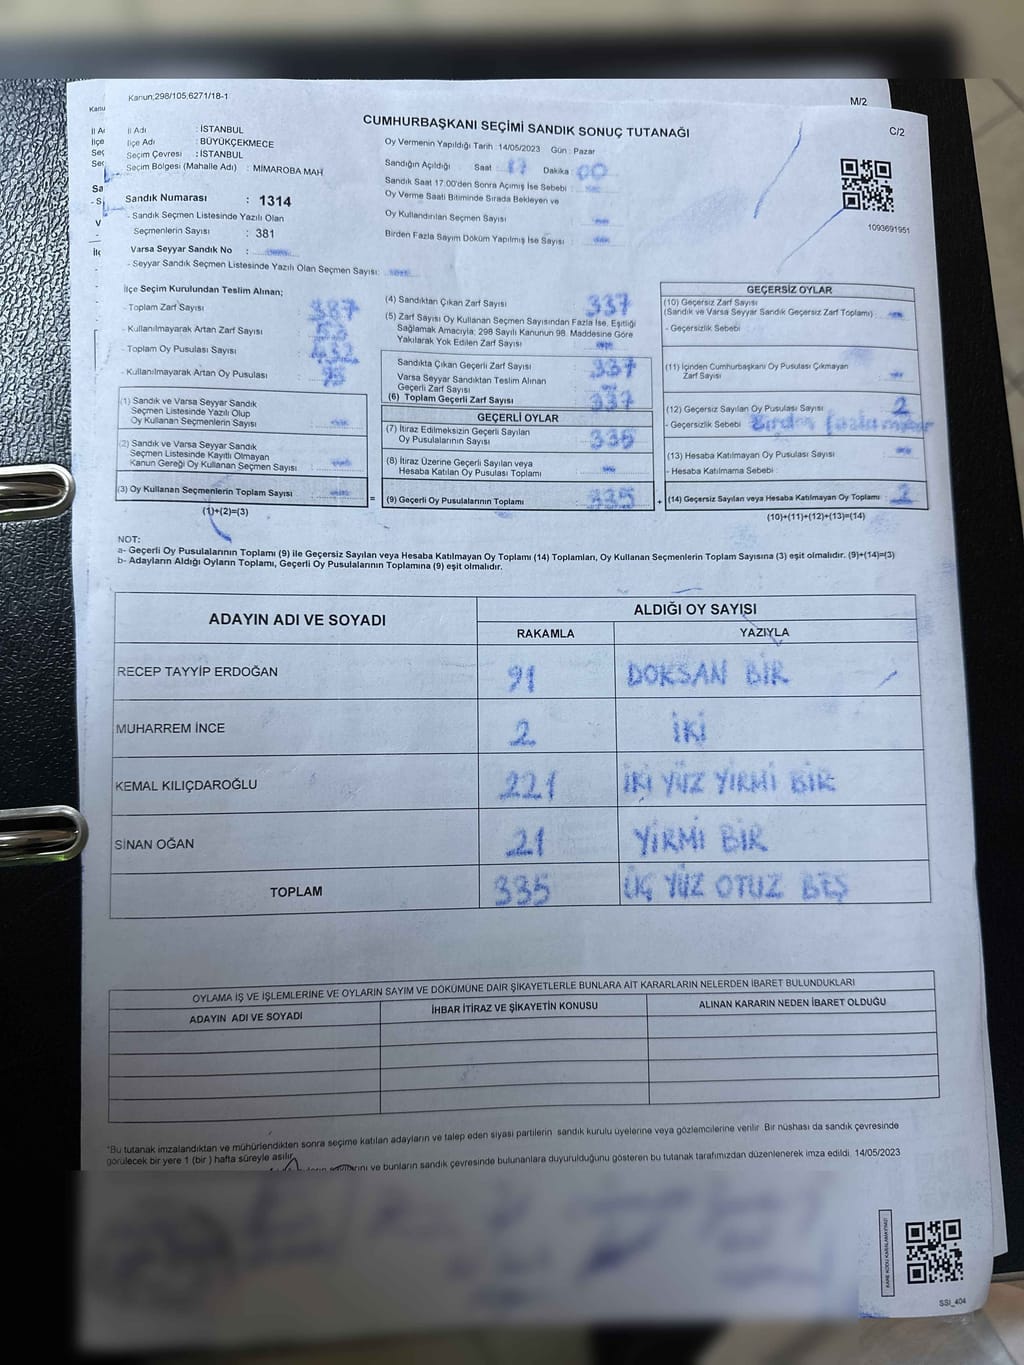 Kanun;298/105,6271/18-1
M/2
C/2
CUMHURBAŞKANI SEÇİMİ SANDIK SONUÇ TUTANAĞI
İl Adı : İSTANBUL
İlçe Adı : BÜYÜKÇEKMECE
Seçim Çevresi : İSTANBUL
Seçim Bölgesi (Mahalle Adı) : MİMAROBA MAH
Oy Vermenin Yapıldığı Tarih : 14/05/2023 Gün : Pazar
Sandığın Açıldığı Saat : 17 Dakika : 00
Sandık Saat 17:00'den Sonra Açımış İse Sebebi :
Oy Verme Saati Bitiminde Sırada Bekleyen ve
Oy Kullandırılan Seçmen Sayısı
Birden Fazla Sayım Döküm Yapılmış İse Sayısı :
1093691951
Sandık Numarası : 1314
- Sandık Seçmen Listesinde Yazılı Olan
Seçmenlerin Sayısı : 381
Varsa Seyyar Sandık No :
- Seyyar Sandık Seçmen Listesinde Yazılı Olan Seçmen Sayısı:
İlçe Seçim Kurulundan Teslim Alınan;
- Toplam Zarf Sayısı 387
- Kullanılmayarak Artan Zarf Sayısı
- Toplam Oy Pusulası Sayısı
- Kullanılmayarak Artan Oy Pusulası
(1) Sandık ve Varsa Seyyar Sandık
Seçmen Listesinde Yazılı Olup
Oy Kullanan Seçmenlerin Sayısı
(2) Sandık ve Varsa Seyyar Sandık
Seçmen Listesinde Kayıtlı Olmayan
Kanun Gereği Oy Kullanan Seçmen Sayısı
(3) Oy Kullanan Seçmenlerin Toplam Sayısı =
(1)+(2)=(3)
(4) Sandıktan Çıkan Zarf Sayısı 337
(5) Zarf Sayısı Oy Kullanan Seçmen Sayısından Fazla İse, Eşitliği
Sağlamak Amacıyla; 298 Sayılı Kanunun 98. Maddesine Göre
Yakılarak Yok Edilen Zarf Sayısı
Sandıkta Çıkan Geçerli Zarf Sayısı 337
Varsa Seyyar Sandıktan Teslim Alınan
Geçerli Zarf Sayısı
(6) Toplam Geçerli Zarf Sayısı 337
GEÇERLİ OYLAR
(7) İtiraz Edilmeksizin Geçerli Sayılan
Oy Pusulalarının Sayısı 335
(8) İtiraz Üzerine Geçerli Sayılan veya
Hesaba Katılan Oy Pusulası Toplamı
(9) Geçerli Oy Pusulalarının Toplamı 335 +
GEÇERSİZ OYLAR
(10) Geçersiz Zarf Sayısı
(Sandık ve Varsa Seyyar Sandık Geçersiz Zarf Toplamı)
- Geçersizlik Sebebi
(11) İçinden Cumhurbaşkanı Oy Pusulası Çıkmayan
Zarf Sayısı
(12) Geçersiz Sayılan Oy Pusulası Sayısı 2
- Geçersizlik Sebebi Birden fazla
(13) Hesaba Katılmayan Oy Pusulası Sayısı
- Hesaba Katılmama Sebebi
(14) Geçersiz Sayılan veya Hesaba Katılmayan Oy Toplamı 2
(10)+(11)+(12)+(13)=(14)
NOT:
a- Geçerli Oy Pusulalarının Toplamı (9) ile Geçersiz Sayılan veya Hesaba Katılmayan Oy Toplamı (14) Toplamları, Oy Kullanan Seçmenlerin Toplam Sayısına (3) eşit olmalıdır. (9)+(14)=(3)
b- Adayların Aldığı Oyların Toplamı, Geçerli Oy Pusulalarının Toplamına (9) eşit olmalıdır.
ADAYIN ADI VE SOYADI ALDIĞI OY SAYISI
RAKAMLA YAZIYLA
RECEP TAYYİP ERDOĞAN 91 DOKSAN BİR
MUHARREM İNCE 2 İKİ
KEMAL KILIÇDAROĞLU 221 İKİ YÜZ YİRMİ BİR
SİNAN OĞAN 21 YİRMİ BİR
TOPLAM 335 ÜÇ YÜZ OTUZ BEŞ
OYLAMA İŞ VE İŞLEMLERİNE VE OYLARIN SAYIM VE DÖKÜMÜNE DAİR ŞİKAYETLERLE BUNLARA AİT KARARLARIN NELERDEN İBARET BULUNDUKLARI
ADAYIN ADI VE SOYADI İHBAR İTİRAZ VE ŞİKAYETİN KONUSU ALINAN KARARIN NEDEN İBARET OLDUĞU
*Bu tutanak imzalandıktan ve mühürlendikten sonra seçime katılan adayların ve talep eden siyasi partilerin sandık kurulu üyelerine veya gözlemcilerine verilir. Bir nüshası da sandık çevresinde
görülecek bir yere 1 (bir ) hafta süreyle asılır.
ve bunların sandık çevresinde bulunanlara duyurulduğunu gösteren bu tutanak tarafımızdan düzenlenerek imza edildi. 14/05/2023
KARE KODU KARALAMAYINIZ!
SSI_404